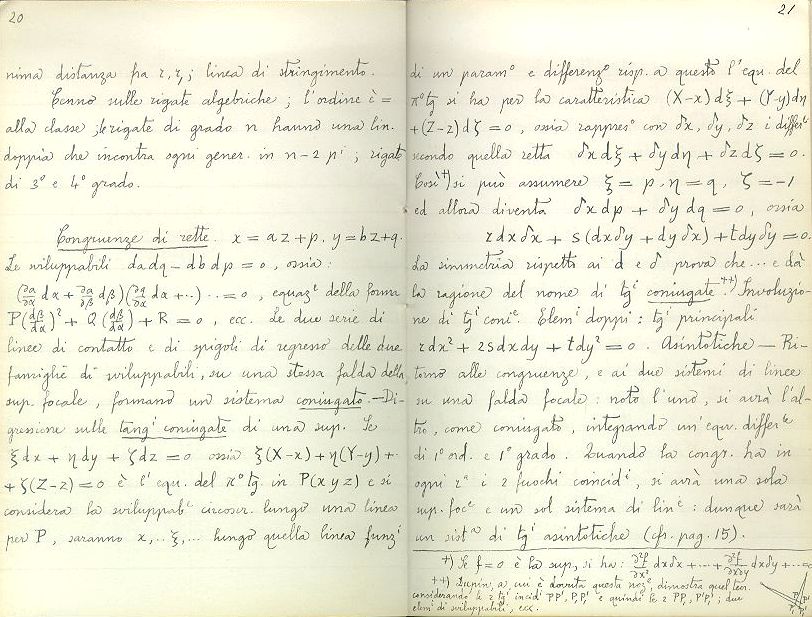 20
nima distanza fra r, r₁; linea di stringimento.
Cenno sulle rigate algebriche; l'ordine è =
alla classe; le rigate di grado n hanno una lin.
doppia che incontra ogni gener. in n-2 pⁱ; rigate
di 3° e 4° grado.
Congruenze di rette. x = az+p, y = bz+q.
Le sviluppabili da dq - db dp = 0, ossia:
(∂a/∂α dα + ∂a/∂β dβ)(∂q/∂α dα + ..) - .. = 0, equazᵉ della forma
P(dβ/dα)² + Q(dβ/dα) + R = 0, ecc. Le due serie di
linee di contatto e di spigoli di regresso delle due
famiglie di sviluppabili, su una stessa falda della
sup. focale, formano un sistema coniugato. - Di-
gressione sulle tangⁱ coniugate di una sup. Se
ξdx + ηdy + ζdz = 0 ossia ξ(X-x) + η(Y-y) +
+ ζ(Z-z) = 0 è l'equ. del π° tg. in P(xyz) e si
considera la sviluppabᵉ circoscr. lungo una linea
per P, saranno x,.. ξ,... lungo quella linea funzⁱ
21
di un param° e differenz° risp. a questo l'equ. del
π° tg si ha per la caratteristica (X-x)dξ + (Y-y)dη
+ (Z-z)dζ = 0, ossia rappres° con δx, δy, δz i differˡⁱ
secondo quella retta δxdξ + δydη + δzdζ = 0.
Così +) si può assumere ξ = p, η = q, ζ = -1
ed allora diventa δxdp + δydq = 0, ossia
rdxδx + s(dxδy + dyδx) + tdyδy = 0.
La simmetria rispetto ai d e δ prova che ... e dà
la ragione del nome di tgⁱ coniugate. ++) Involuzio-
ne di tgⁱ conⁱᵉ. Elemⁱ doppi: tgⁱ principali
rdx² + 2sdxdy + tdy² = 0. Asintotiche - Ri-
torno alle congruenze, e ai due sistemi di linee
su una falda focale: noto l'uno, si avrà l'al-
tro, come coniugato, integrando un'equ. differˡᵉ
di 1° ord. e 1° grado. Quando la congr. ha in
ogni rᵃ i 2 fuochi coincidⁱ, si avrà una sola
sup. focᵉ e un sol sistema di linᵉ: dunque sarà
un sistᵃ di tgⁱ asintotiche (cfr. pag. 15).
+) Se f = 0 è la sup., si ha: ∂²f/∂x² dxδx + ... + ∂²f/∂x∂y dxδy + ... = 0
++) Dupin, a cui è dovuta questa nozᵉ, dimostra quel teor.
considerando le 2 tgⁱ incidⁱ PP', P₁P₁' e quindi le 2 PP₁, P'P₁'; due
elemⁱ di sviluppabili, ecc.